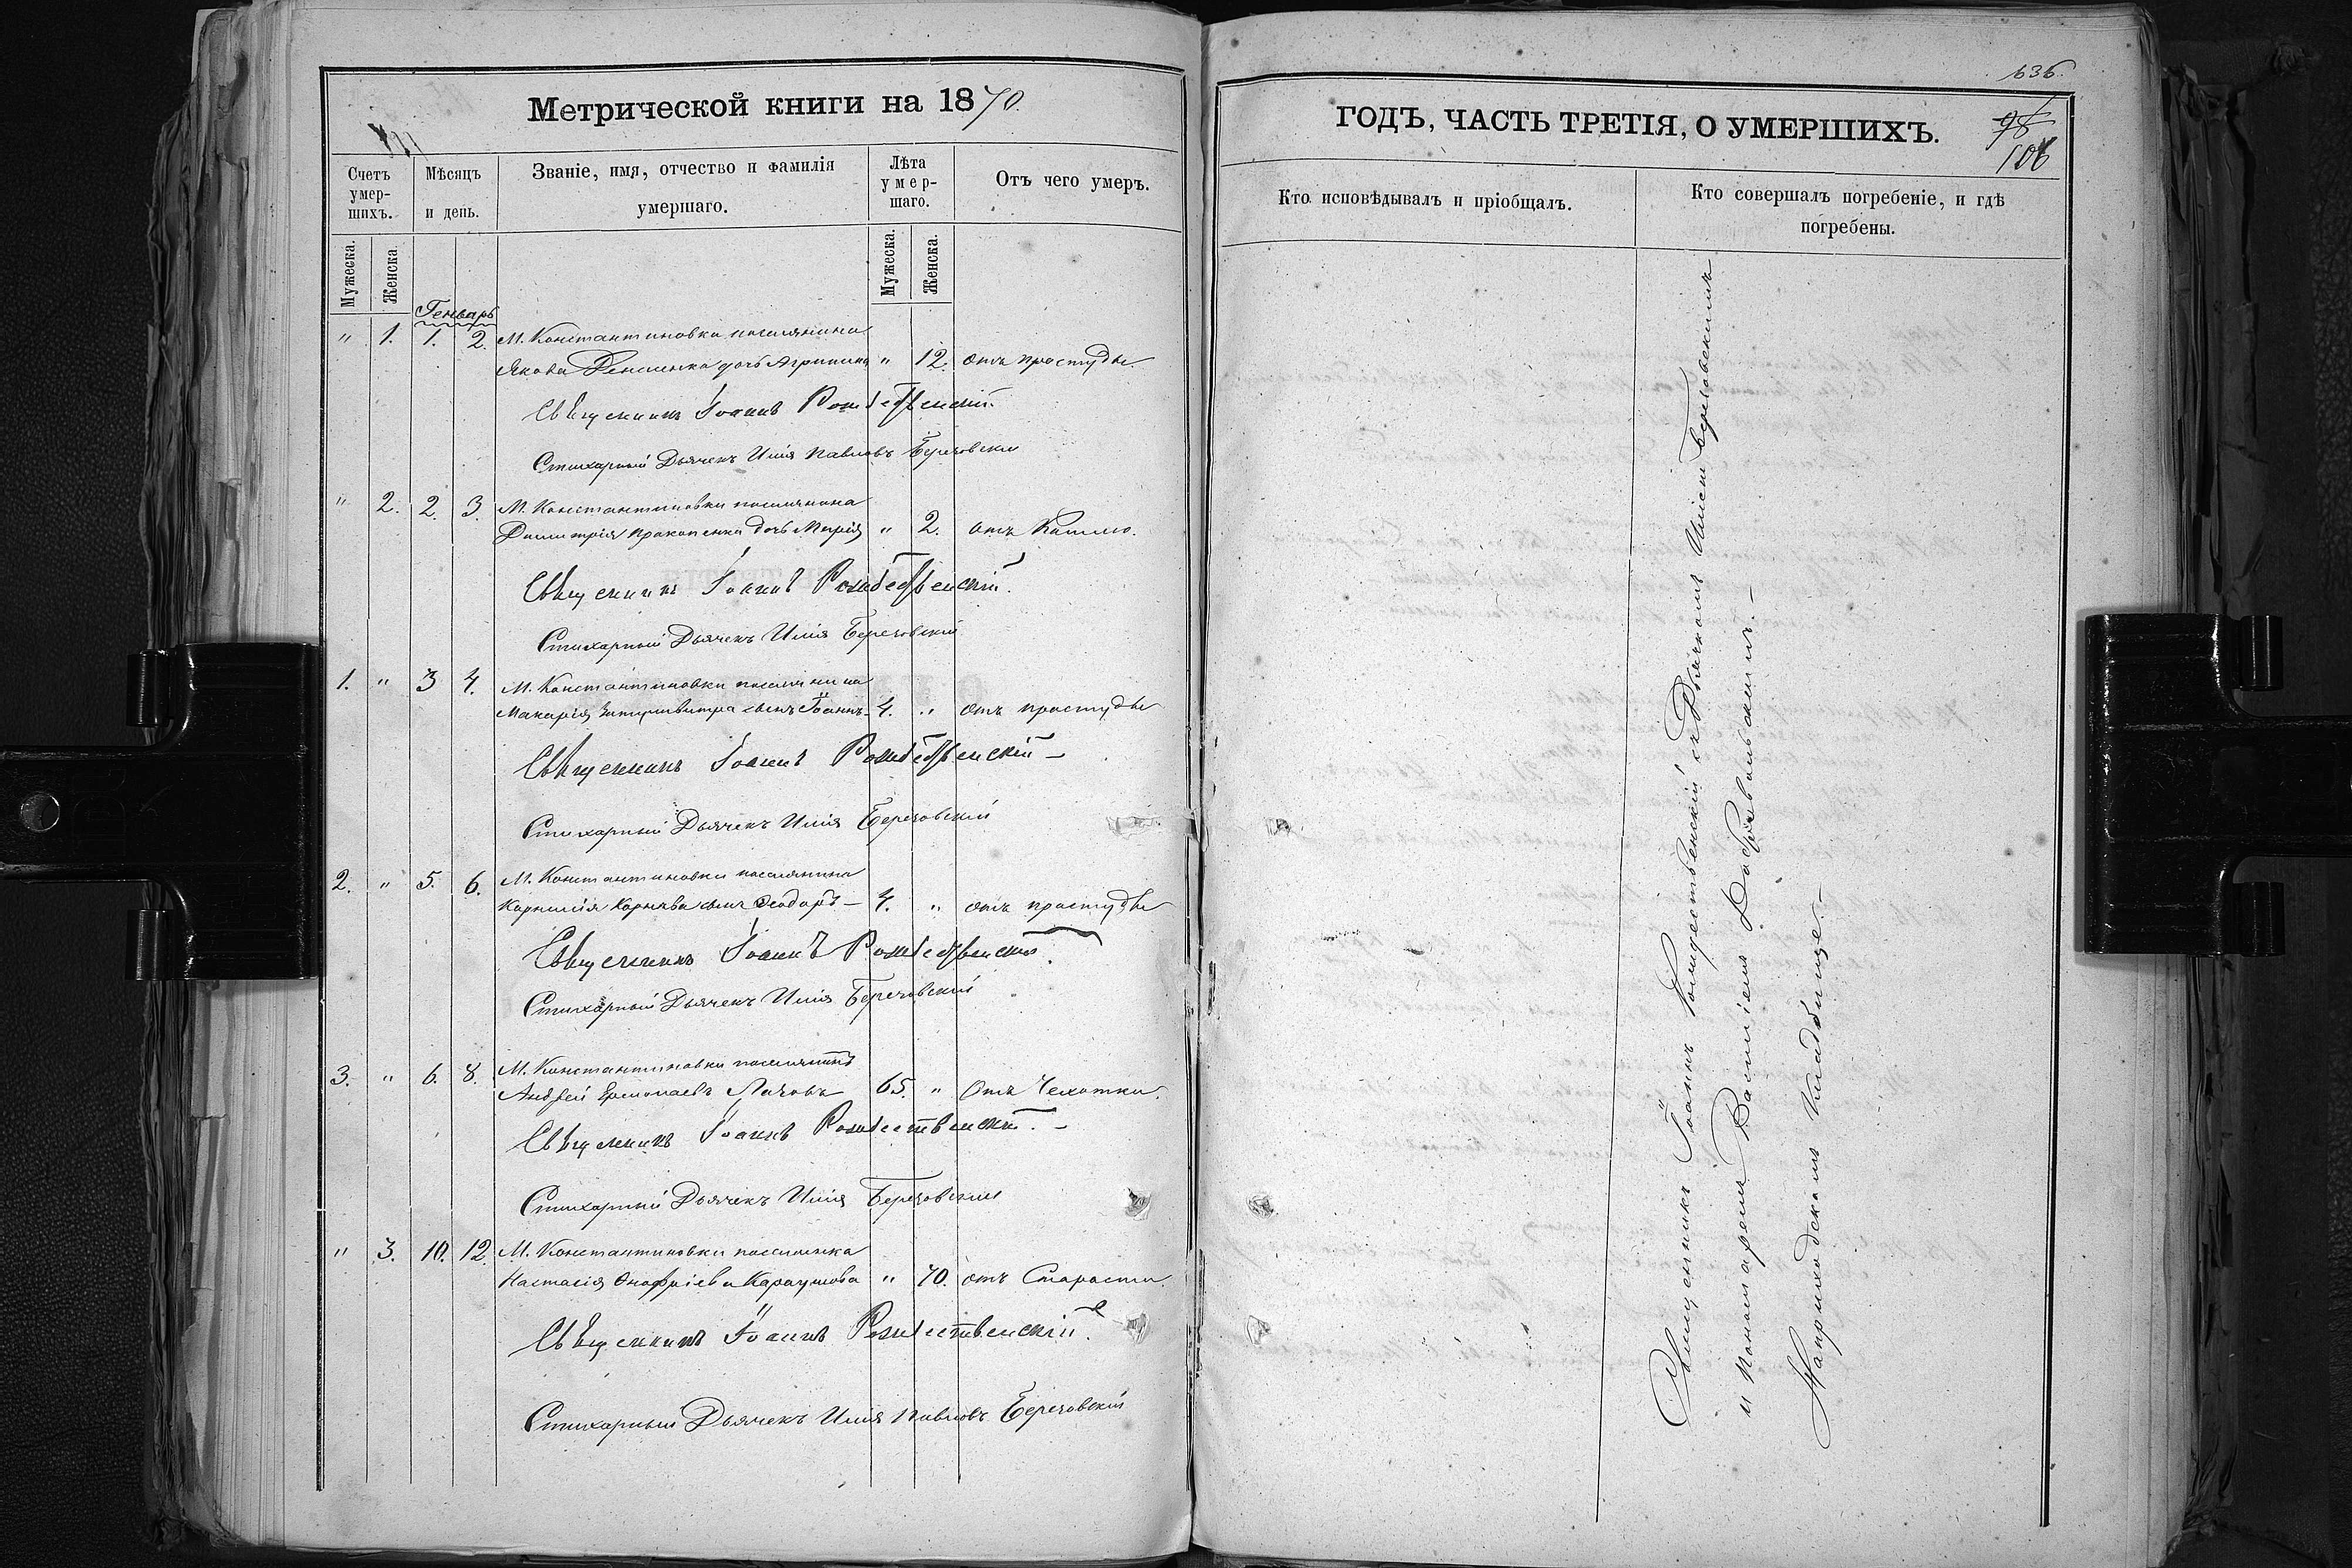 Метрической книги на 1870.
Счетъ умер-шихъ.
Мѣсяцъ и день.
Званіе, имя, отчество и фамилія умершаго.
Лѣта умер-шаго.
Отъ чего умеръ.
Мужеска.
Женска
Мужеска.
Женска.
Генварь
" 1. 1. 2. М. Константиновки поселянина
Якова дочь Агрипина " 12. отъ простуды.
Священникъ Іоаннъ Рождественскій.
Стихарный Дьячекъ Илія Павловъ Березовскій
" 2. 2. 3. М. Константиновки поселянина
Димитрія Прокопенка дочь Марія " 2. отъ Кашлю.
Священникъ Іоаннъ Рождественскій.
Стихарный Дьячекъ Илія Березовскій
1. " 3 4. М. Константиновки поселянина
Макарія сынъ Іоаннъ 4. " отъ простуды
Священникъ Іоаннъ Рождественскій
Стихарный Дьячекъ Илія Березовскій
2. " 5. 6. М. Константиновки поселянина
Корнилія сынъ Феодоръ 4. " отъ простуды
Священникъ Іоаннъ Рождественскій.
Стихарный Дьячекъ Илія Березовскій
3. " 6. 8. М. Константиновки поселянинъ
Андрей Ермолаевъ 65. " Отъ Чехотки.
Священникъ Іоаннъ Рождественскій.
Стихарный Дьячекъ Илія Березовскій
" 3. 10. 12. М. Константиновки поселянка
Настасія Онофріева " 70. отъ Старости.
Священникъ Іоаннъ Рождественскій.
Стихарный Дьячекъ Илія Павловъ Березовскій
636.
ГОДЪ, ЧАСТЬ ТРЕТІЯ, О УМЕРШИХЪ.
106
Кто исповѣдывалъ и пріобщалъ.
Кто совершалъ погребеніе, и гдѣ
погребены.
Священникъ Іоаннъ Рождественскій съ Дьячкомъ Иліею Березовскимъ
и Пономаремъ Василіемъ
На приходскомъ Кладбище.